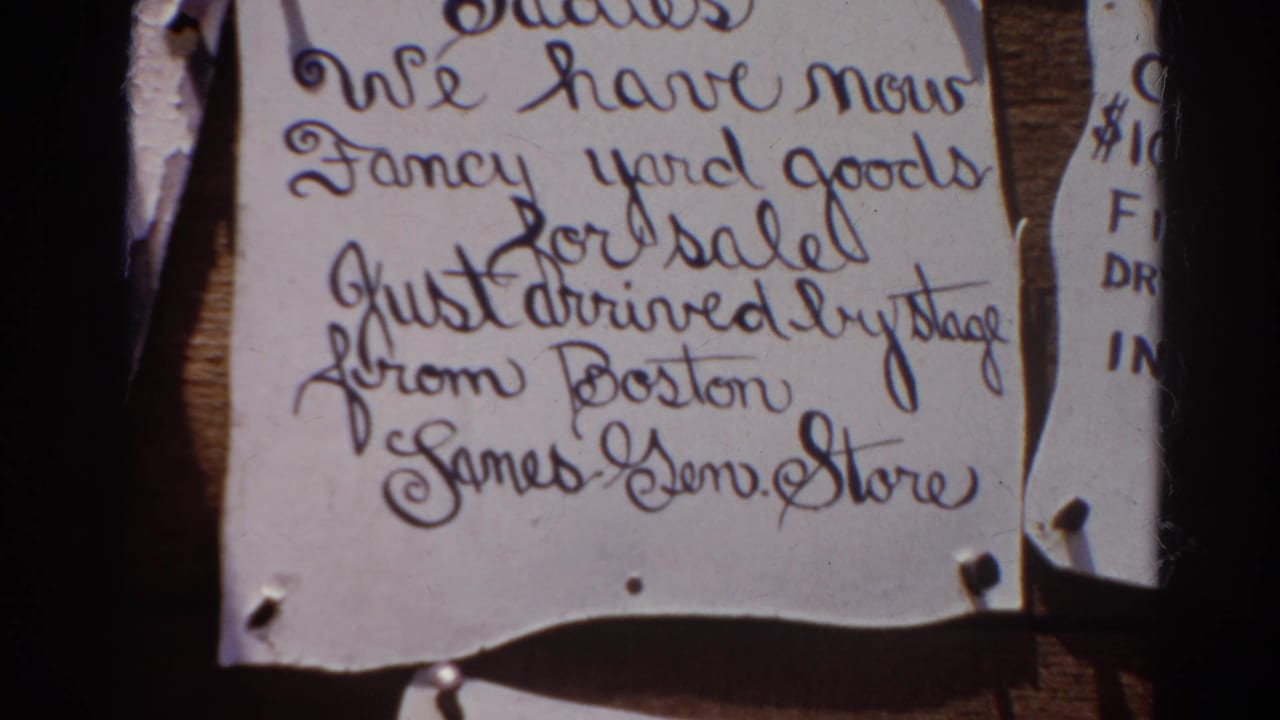 Ladies
We have now
Fancy yard goods
for sale
Just arrived by stage
from Boston
Janes Gen. Store
$10
DR
IN